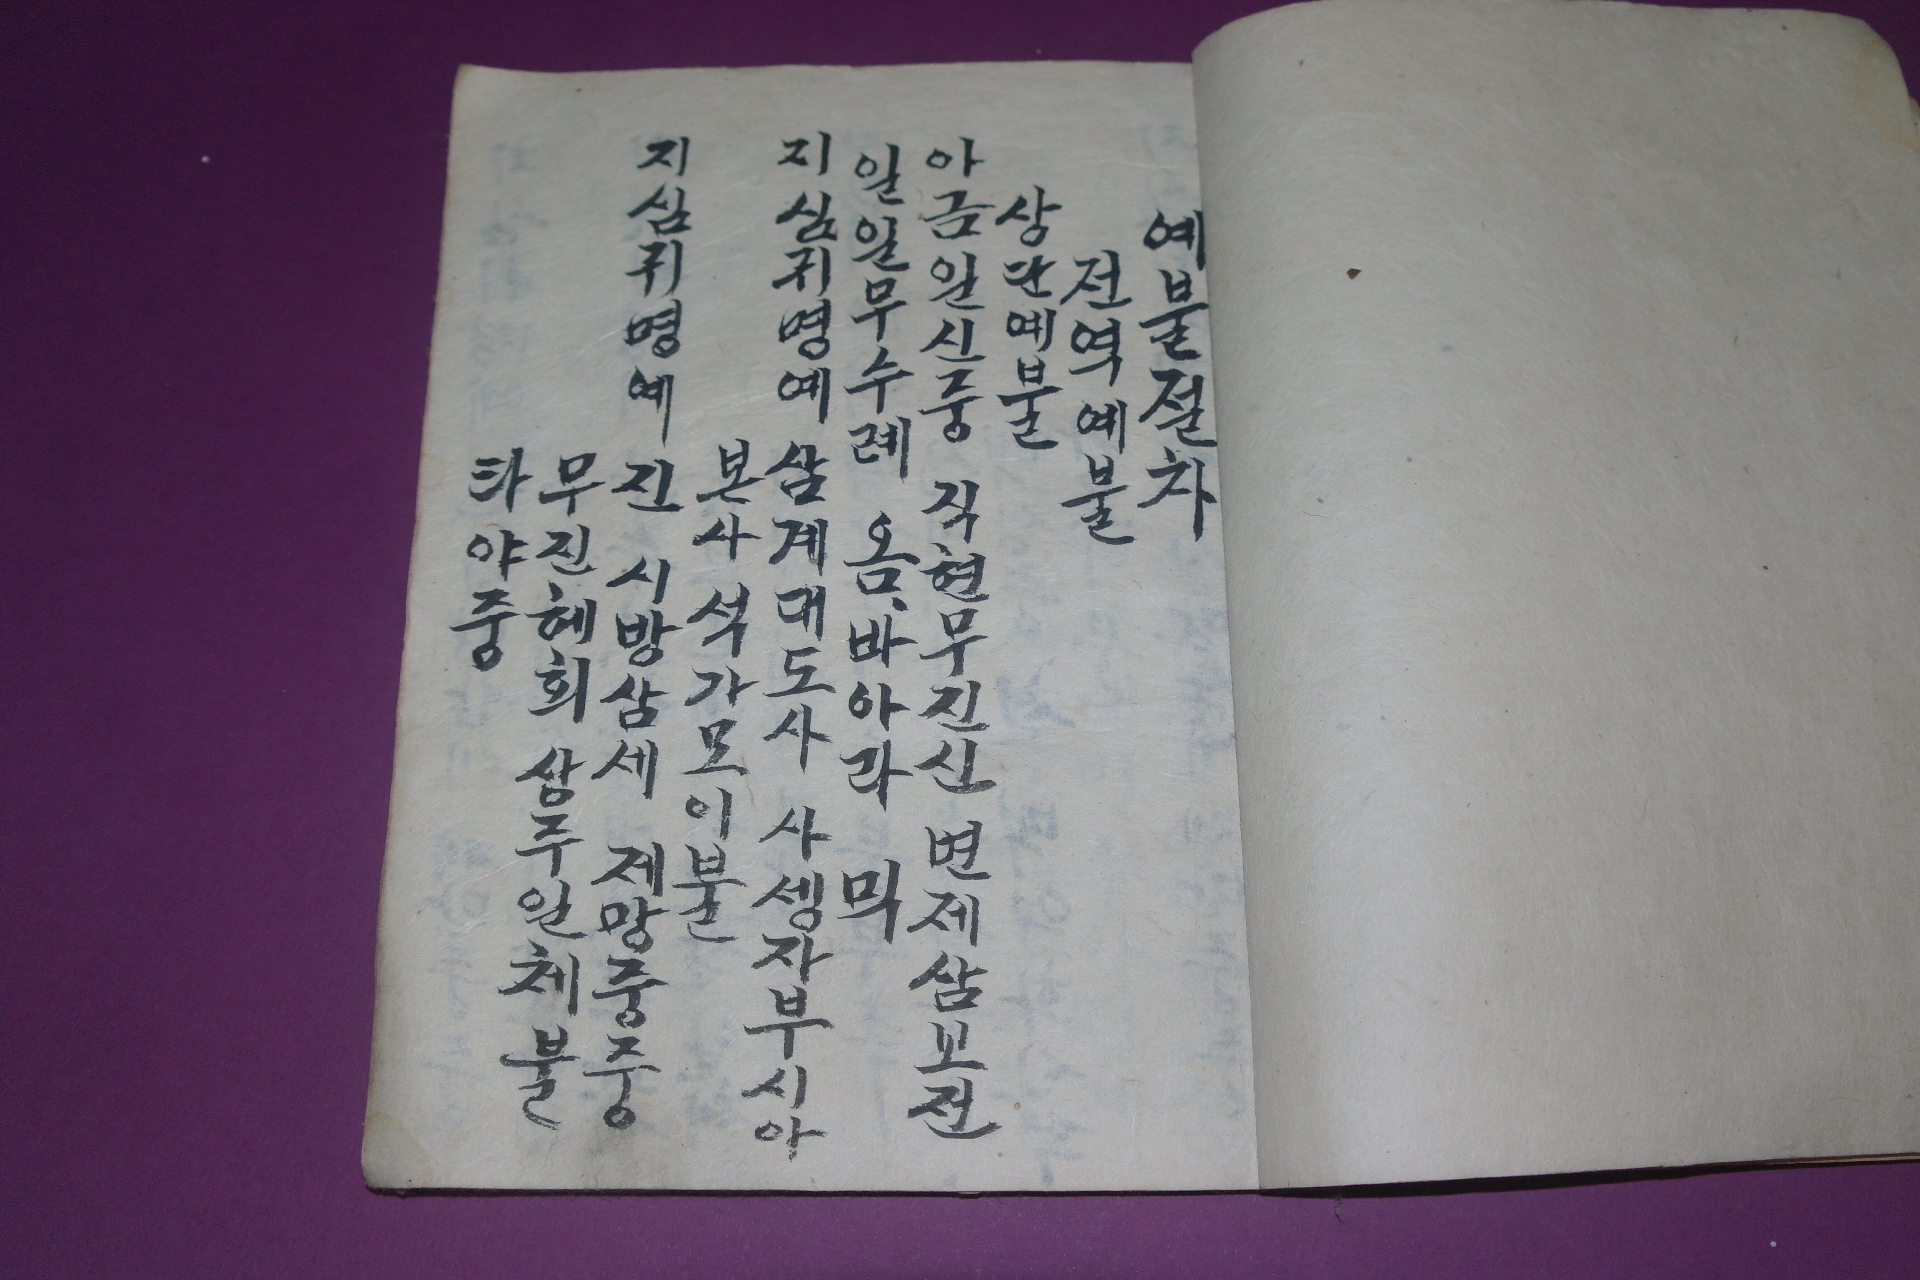 예불절차
전역예불
상단예불
아금일신중 직현무진신 변제삼보전
일일무수례 옴、바아라 믹
지심귀명예 삼계대도사 사셍자부시아
본사석가모이불
지심귀명예 진 시방삼세 제망중중
무진혜회 상주일체불
타야중